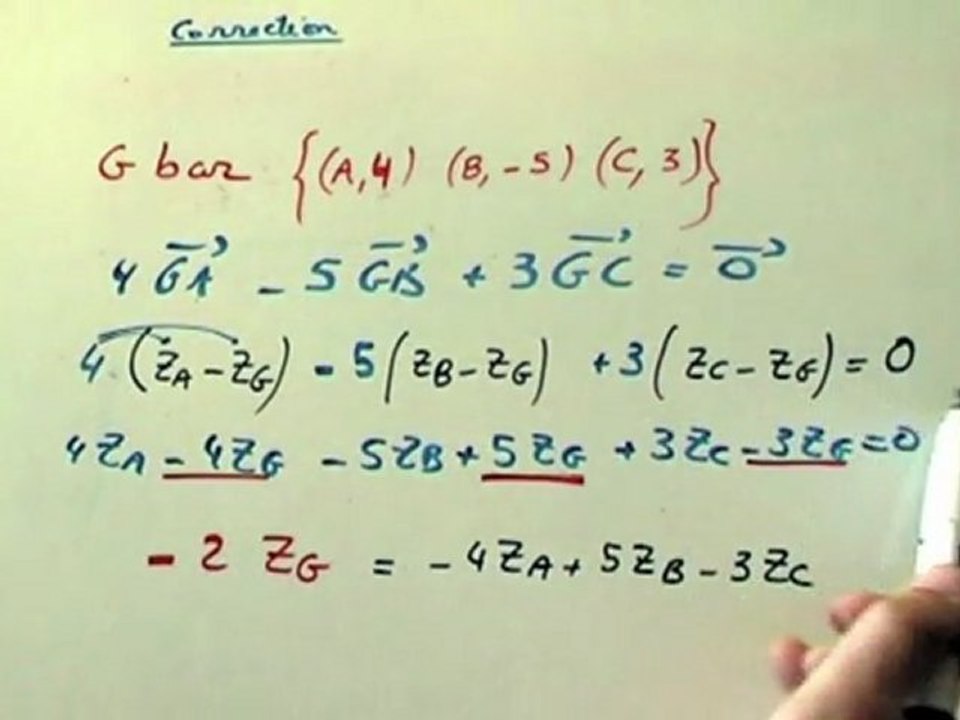 Correction
G bar {(A,4) (B,-5) (C,3)}
4 G⃗A⃗ - 5 G⃗B⃗ + 3 G⃗C⃗ = 0⃗
4 (ZA - ZG) - 5 (ZB - ZG) + 3 (ZC - ZG) = 0
4ZA - 4ZG - 5ZB + 5ZG + 3ZC - 3ZG = 0
- 2 ZG = - 4ZA + 5ZB - 3ZC